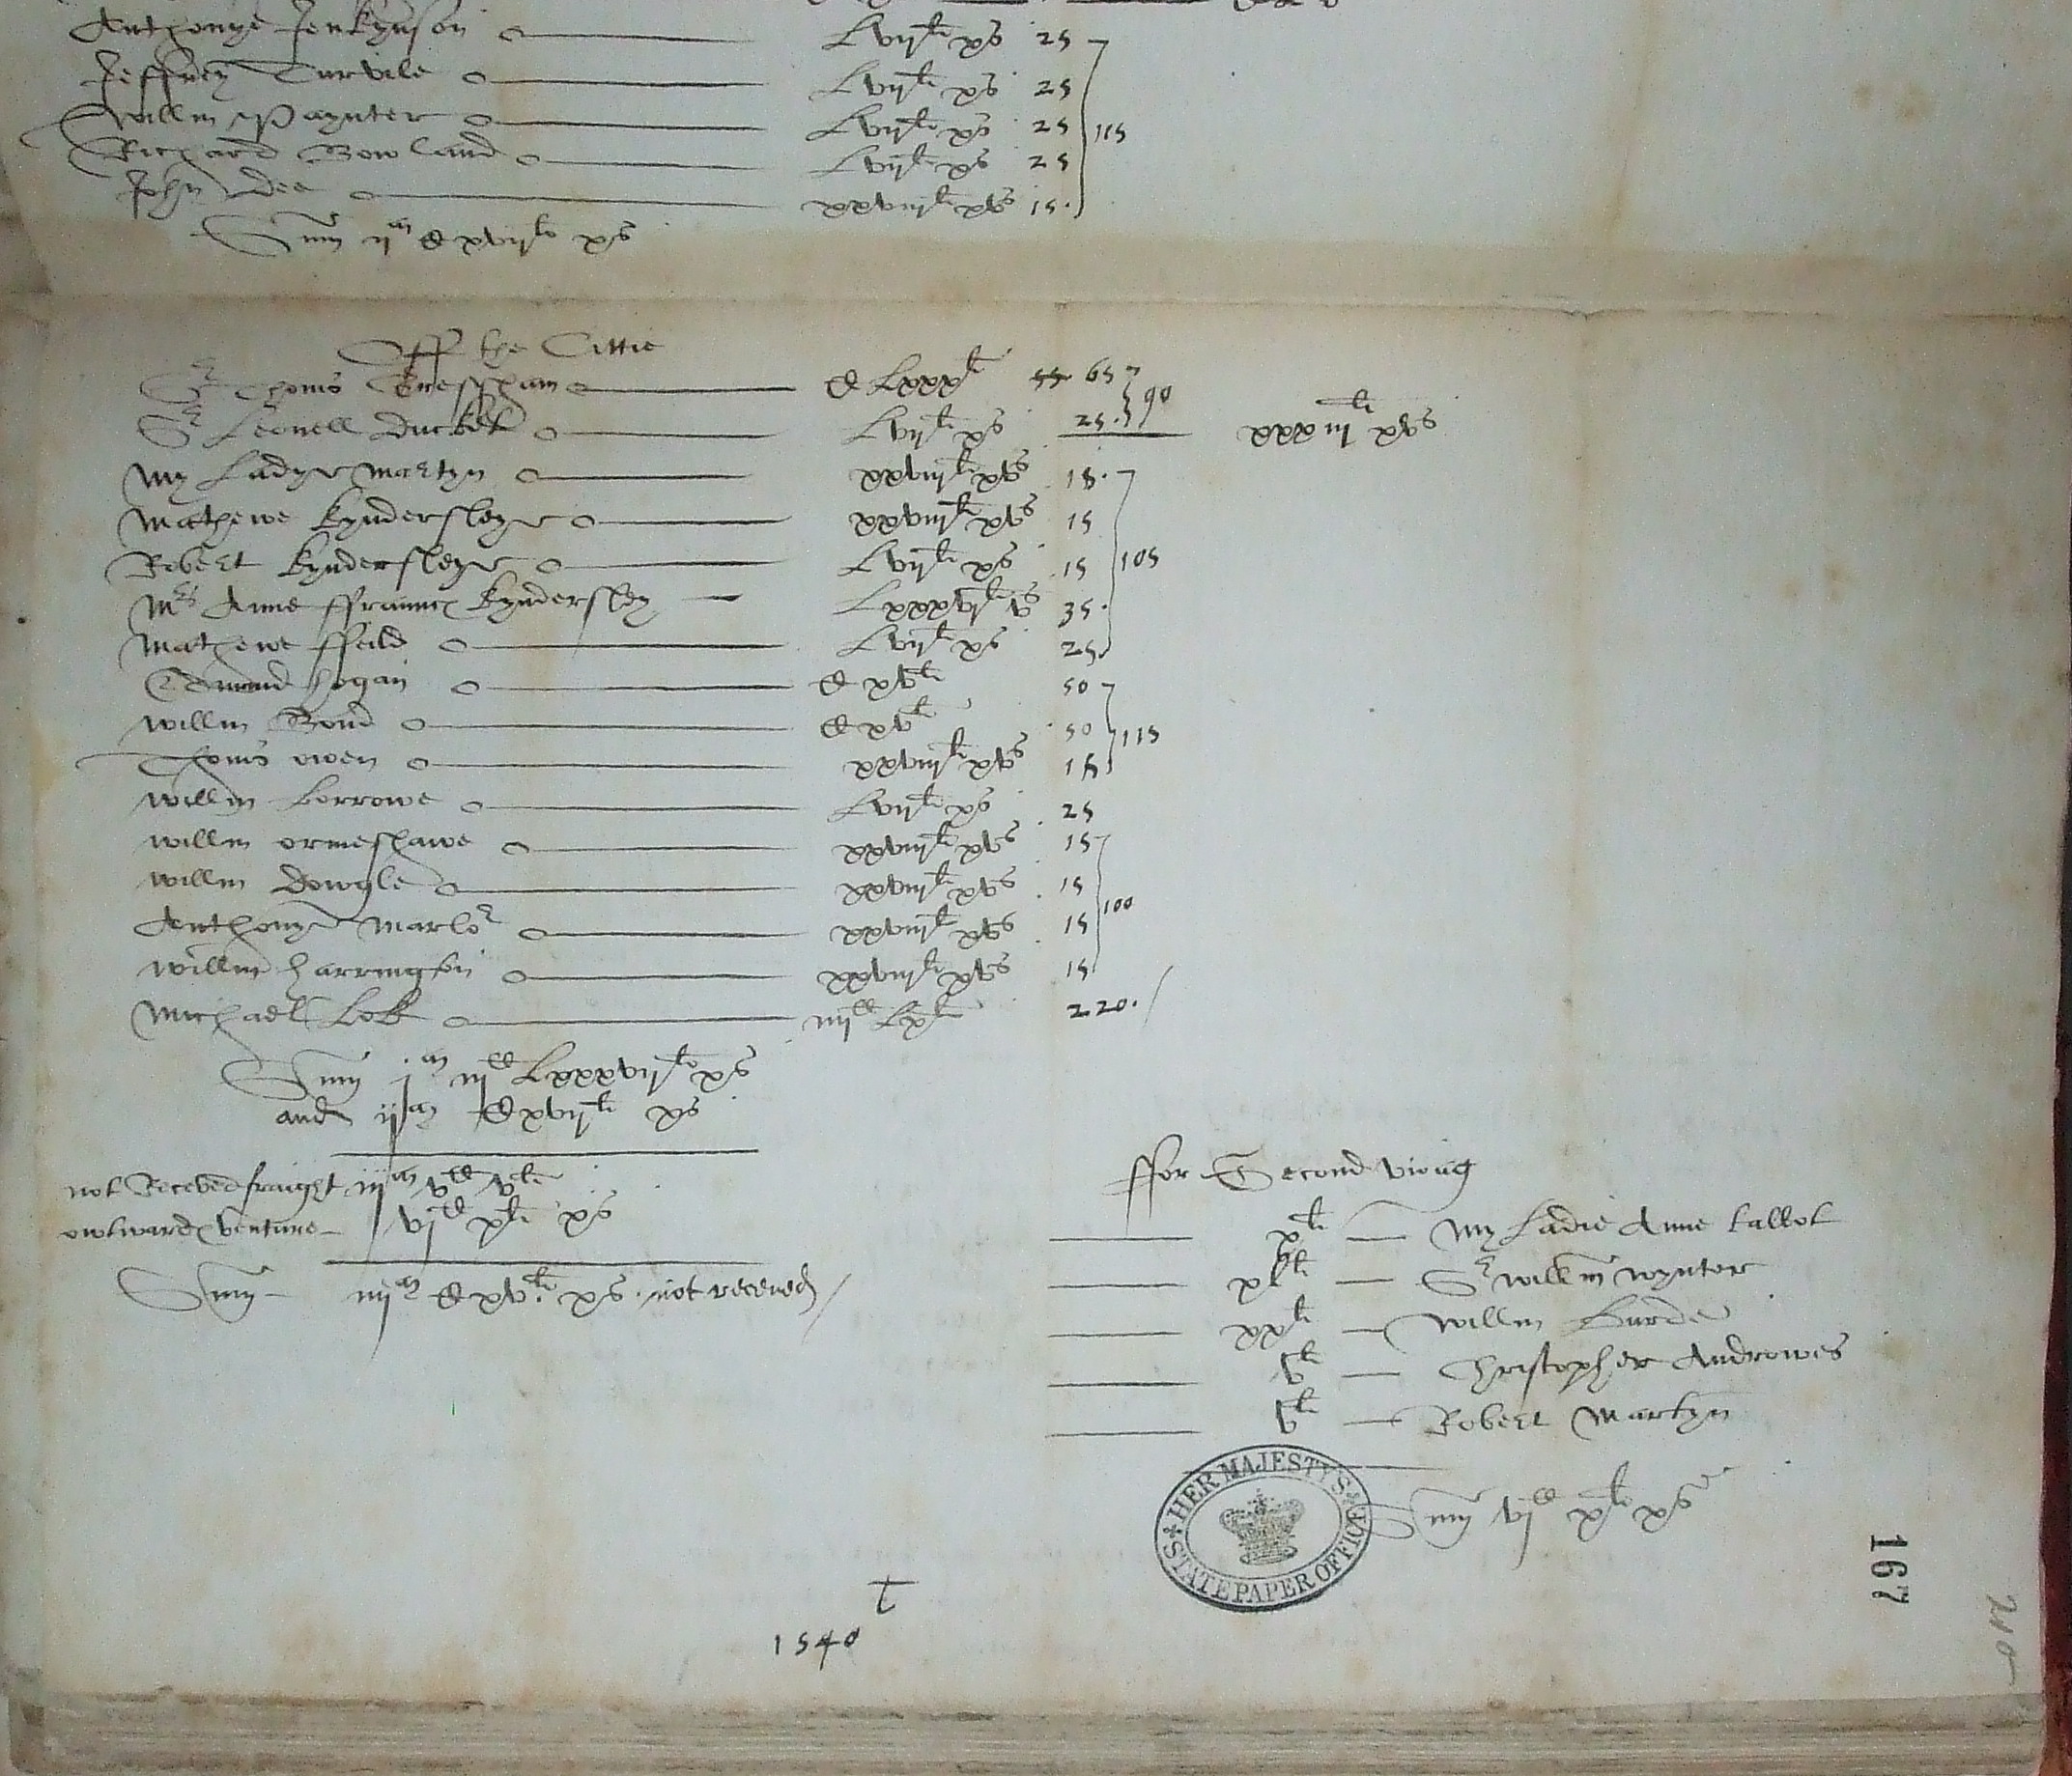 Anthonye Jenkynson Lvijli xs 25
Jeffrey Turvile Lvijli xs 25
Willm Paynter Lvijli xs 25 115
Richard Bowland Lvijli xs 25
John Dee xxviijli xvs 15.
Smm ijm C xvijli xs
Off the Cittie
Sr Thoms Gresham C Lxxxli 55 65
Sr Leonell Ducket Lvijli xs 25. 90 xxxiiijli xvs
My Ladye Martyn xxviijli xvs 15.
Mathewe Kyndersleye xxviijli xvs 15
Robert Kyndersleye Lvijli xs 15 105
Mrs Anne ffraunces Kyndersley Lxxxvjli vs 35.
Mathewe ffeild Lvijli xs 25
Edmund hogan C xvli 50
Willm Bond C xvli 50 115
Thoms owen xxviijli xvs 15
Willm borrowe Lvijli xs 25
willm ormeshawe xxviijli xvs 15
willm Dowgle xxviijli xvs 15
Anthonye Marler xxviijli xvs 15 100
Willm harrington xxviijli xvs 15
Michaell Lok iiijC Lxli 220.
Smm jm iijC Lxxxvijli xs
and ijm C xvijli xs
not Receved fraight iijm vC vli
owtward venture vjC xli xs
Smm iiijm C xvli xs. not receved
ffor Second vioag
xli My Ladie Anne tallbot
xlli Sr willm wynter
xxli Willm Burde
vli Christopher Androwes
vli Robert Martyn
Smm vjC xli xs
HER MAJESTY'S STATE PAPER OFFICE
167
t
1540